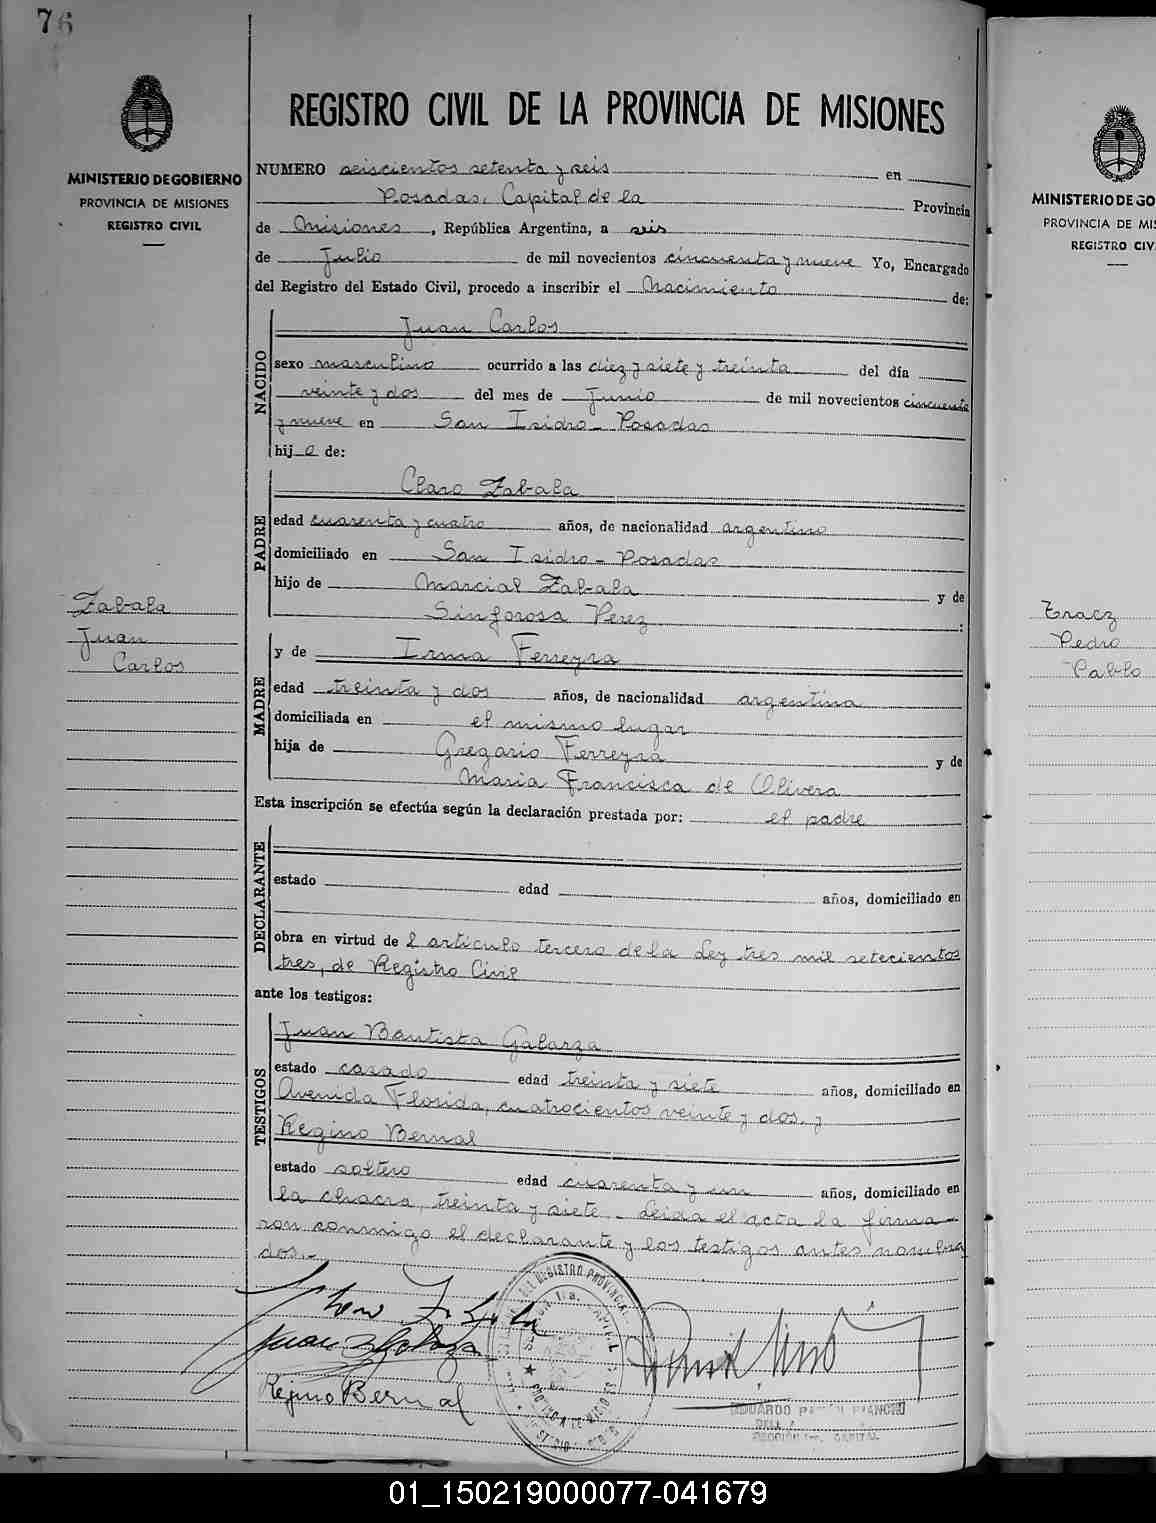 76
REGISTRO CIVIL DE LA PROVINCIA DE MISIONES
MINISTERIO DE GOBIERNO
PROVINCIA DE MISIONES
REGISTRO CIVIL
NUMERO seiscientos setenta y seis en
Posadas, Capital de la Provincia
de Misiones, República Argentina, a seis
de Julio de mil novecientos cincuenta y nueve Yo, Encargado
del Registro del Estado Civil, procedo a inscribir el Nacimiento de:
NACIDO
Juan Carlos
sexo masculino ocurrido a las diez y siete y treinta del día
veinte y dos del mes de Junio de mil novecientos cincuenta
y nueve en San Isidro - Posadas
hijo de:
PADRE
Claro Zabala
edad cuarenta y cuatro años, de nacionalidad argentino
domiciliado en San Isidro - Posadas
hijo de Marcial Zabala y de
Sinforosa Perez :
Zabala
Juan
Carlos
MADRE
y de Irma Ferreyra
edad treinta y dos años, de nacionalidad argentina
domiciliada en el mismo lugar
hija de Gregorio Ferreyra y de
Maria Francisca de Olivera
Esta inscripción se efectúa según la declaración prestada por: el padre
DECLARANTE
estado edad años, domiciliado en
obra en virtud de l artículo tercero de la Ley tres mil setecientos
tres, de Registro Civil
ante los testigos:
TESTIGOS
Juan Bautista Galarza
estado casado edad treinta y siete años, domiciliado en
Avenida Florida, cuatrocientos veinte y dos, y
Regino Bernal
estado soltero edad cuarenta y un años, domiciliado en
la chacra, treinta y siete - Leida el acta la firma-
ron conmigo el declarante y los testigos antes nombra
dos.-
Juan B Galarza
Regino Bernal
MINISTERIO DE GO
PROVINCIA DE MIS
REGISTRO CIV
Tracz
Pedro
Pablo
01_150219000077-041679